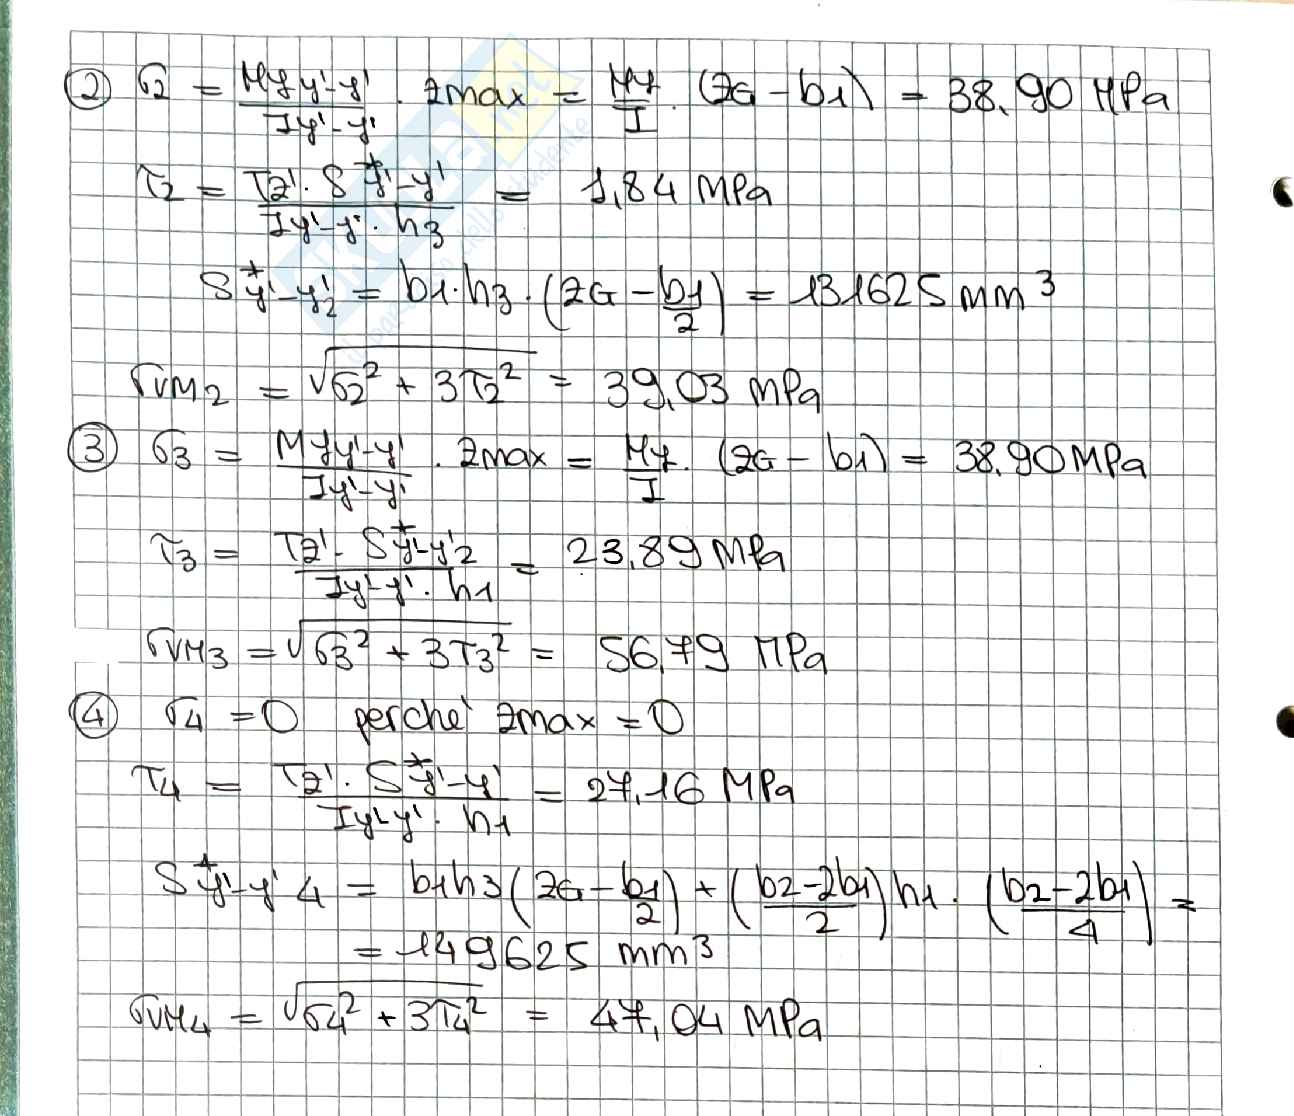 ② σ2 = My y'-y' / Iy'-y' · zmax = My / I · (zG - b1) = 38,90 MPa
τ2 = Tz' · S*y'-y' / Iy'-y' · h3 = 1,84 MPa
S*y'-y'2 = b1·h3·(zG - b1/2) = 131625 mm³
σVM2 = √σ2² + 3τ2² = 39,03 MPa
③ σ3 = My y'-y' / Iy'-y' · zmax = My / I · (zG - b1) = 38,90 MPa
τ3 = Tz' · S*y'-y'2 / Iy'-y' · h1 = 23,89 MPa
σVM3 = √σ3² + 3τ3² = 56,79 MPa
④ σ4 = 0 perche' zmax = 0
τ4 = Tz' · S*y'-y' / Iy'-y' · h1 = 27,16 MPa
S*y'-y' 4 = b1h3(zG - b1/2) + (b2-2b1/2)h1 · (b2-2b1/4) =
= 149625 mm³
σVM4 = √σ4² + 3τ4² = 47,04 MPa